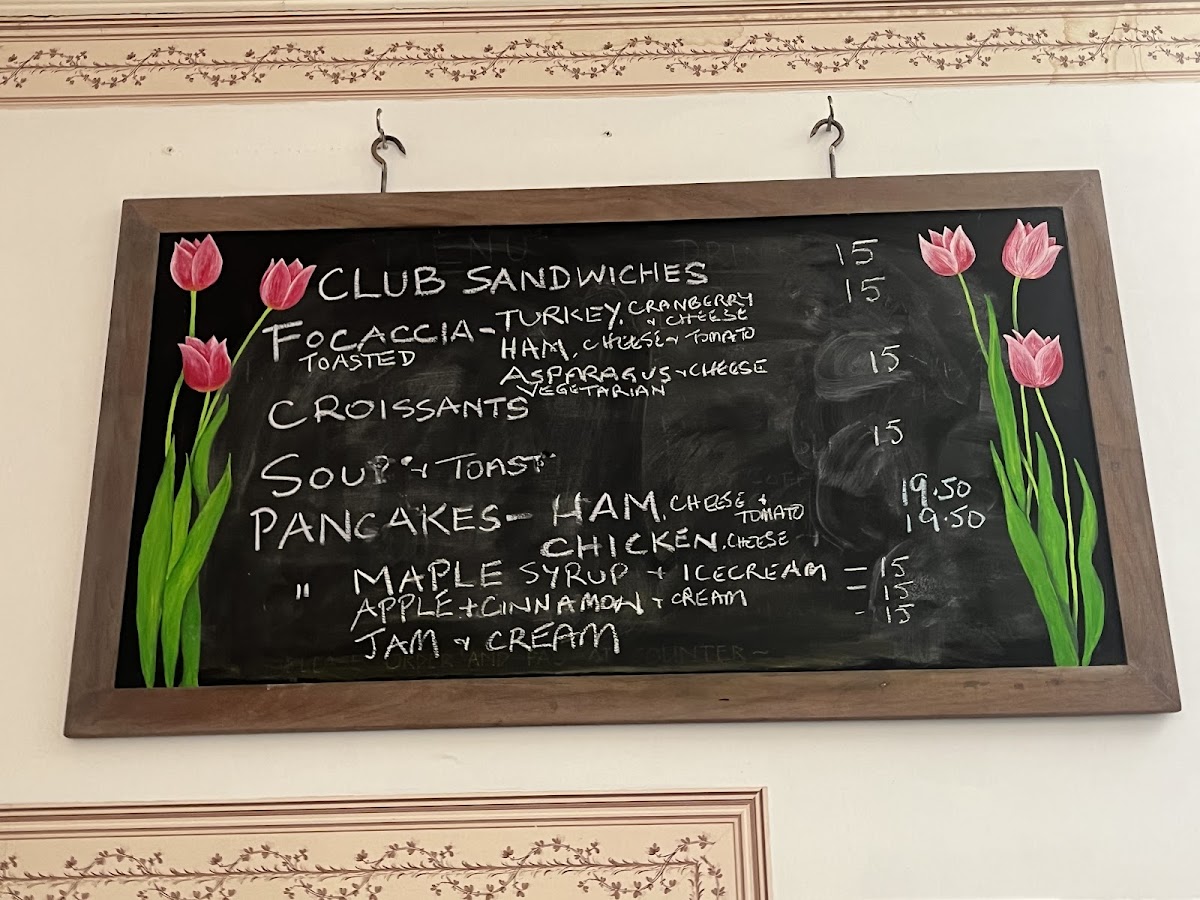 CLUB SANDWICHES 15
FOCACCIA - TURKEY, CRANBERRY & CHEESE 15
TOASTED HAM, CHEESE & TOMATO
ASPARAGUS & CHEESE 15
VEGETARIAN
CROISSANTS
SOUP & TOAST 15
PANCAKES - HAM, CHEESE & TOMATO 19.50
CHICKEN, CHEESE 19.50
" MAPLE SYRUP & ICECREAM = 15
APPLE + CINNAMON & CREAM = 15
JAM & CREAM - 15
ORDER AND PAY AT COUNTER ~